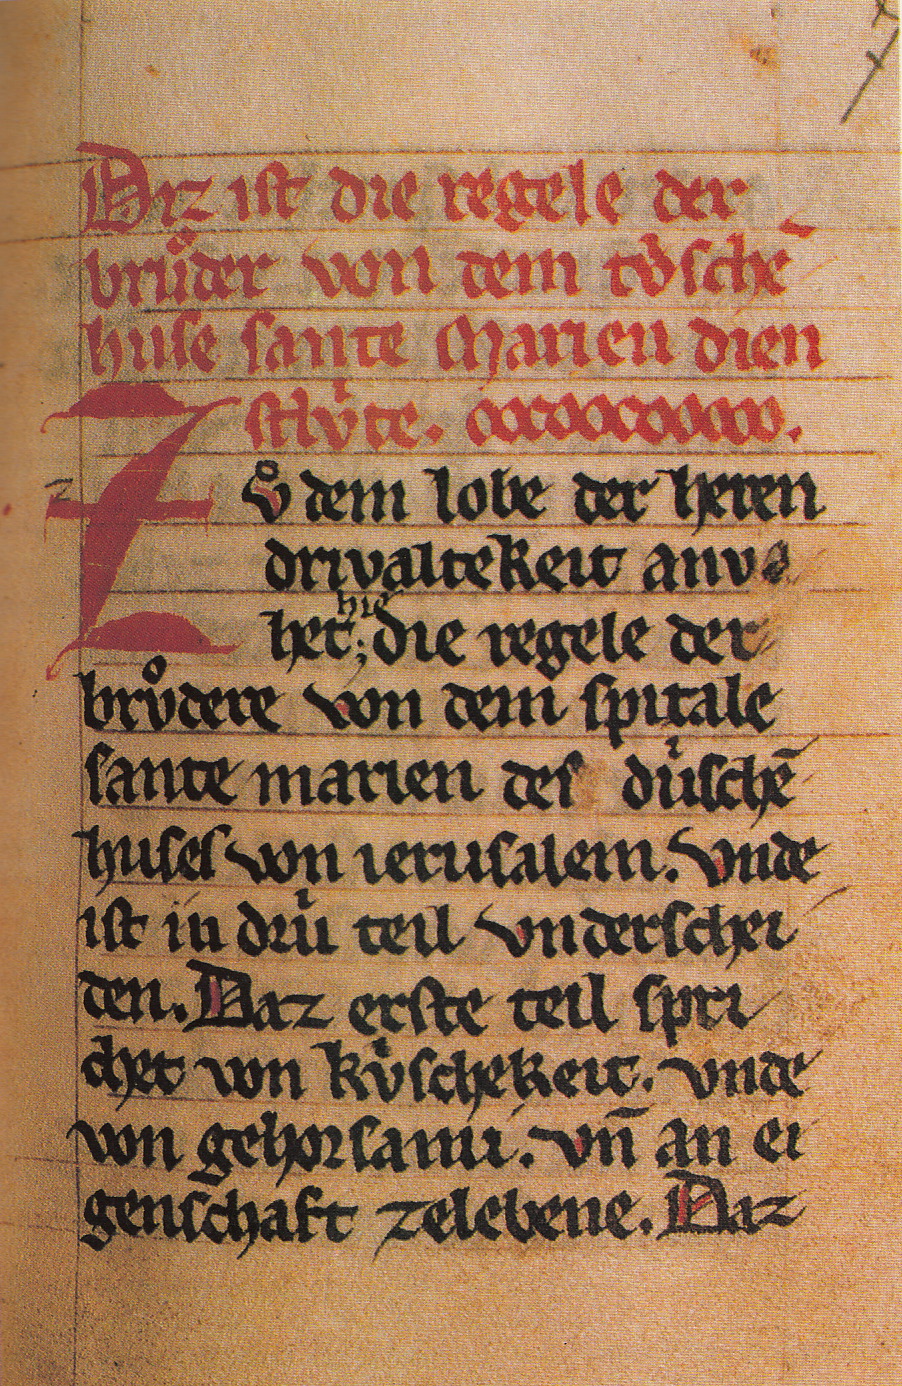 Diz ist die regele der
brůder von dem tv̓schē
huse sante Marien dien
stlv̓te.
Zv̊ dem lobe der heren
drivaltekeit anv
het; hie die regele der
brv̊dere von dem spitale
sante marien des du̓schē
huses von ierusalem. vnde
ist in dru̓ teil vnderschei
den. Daz erste teil spri
chet von kv̓schekeit. vnde
von gehorsami. vn̄ an ei
genschaft zelebene. Daz